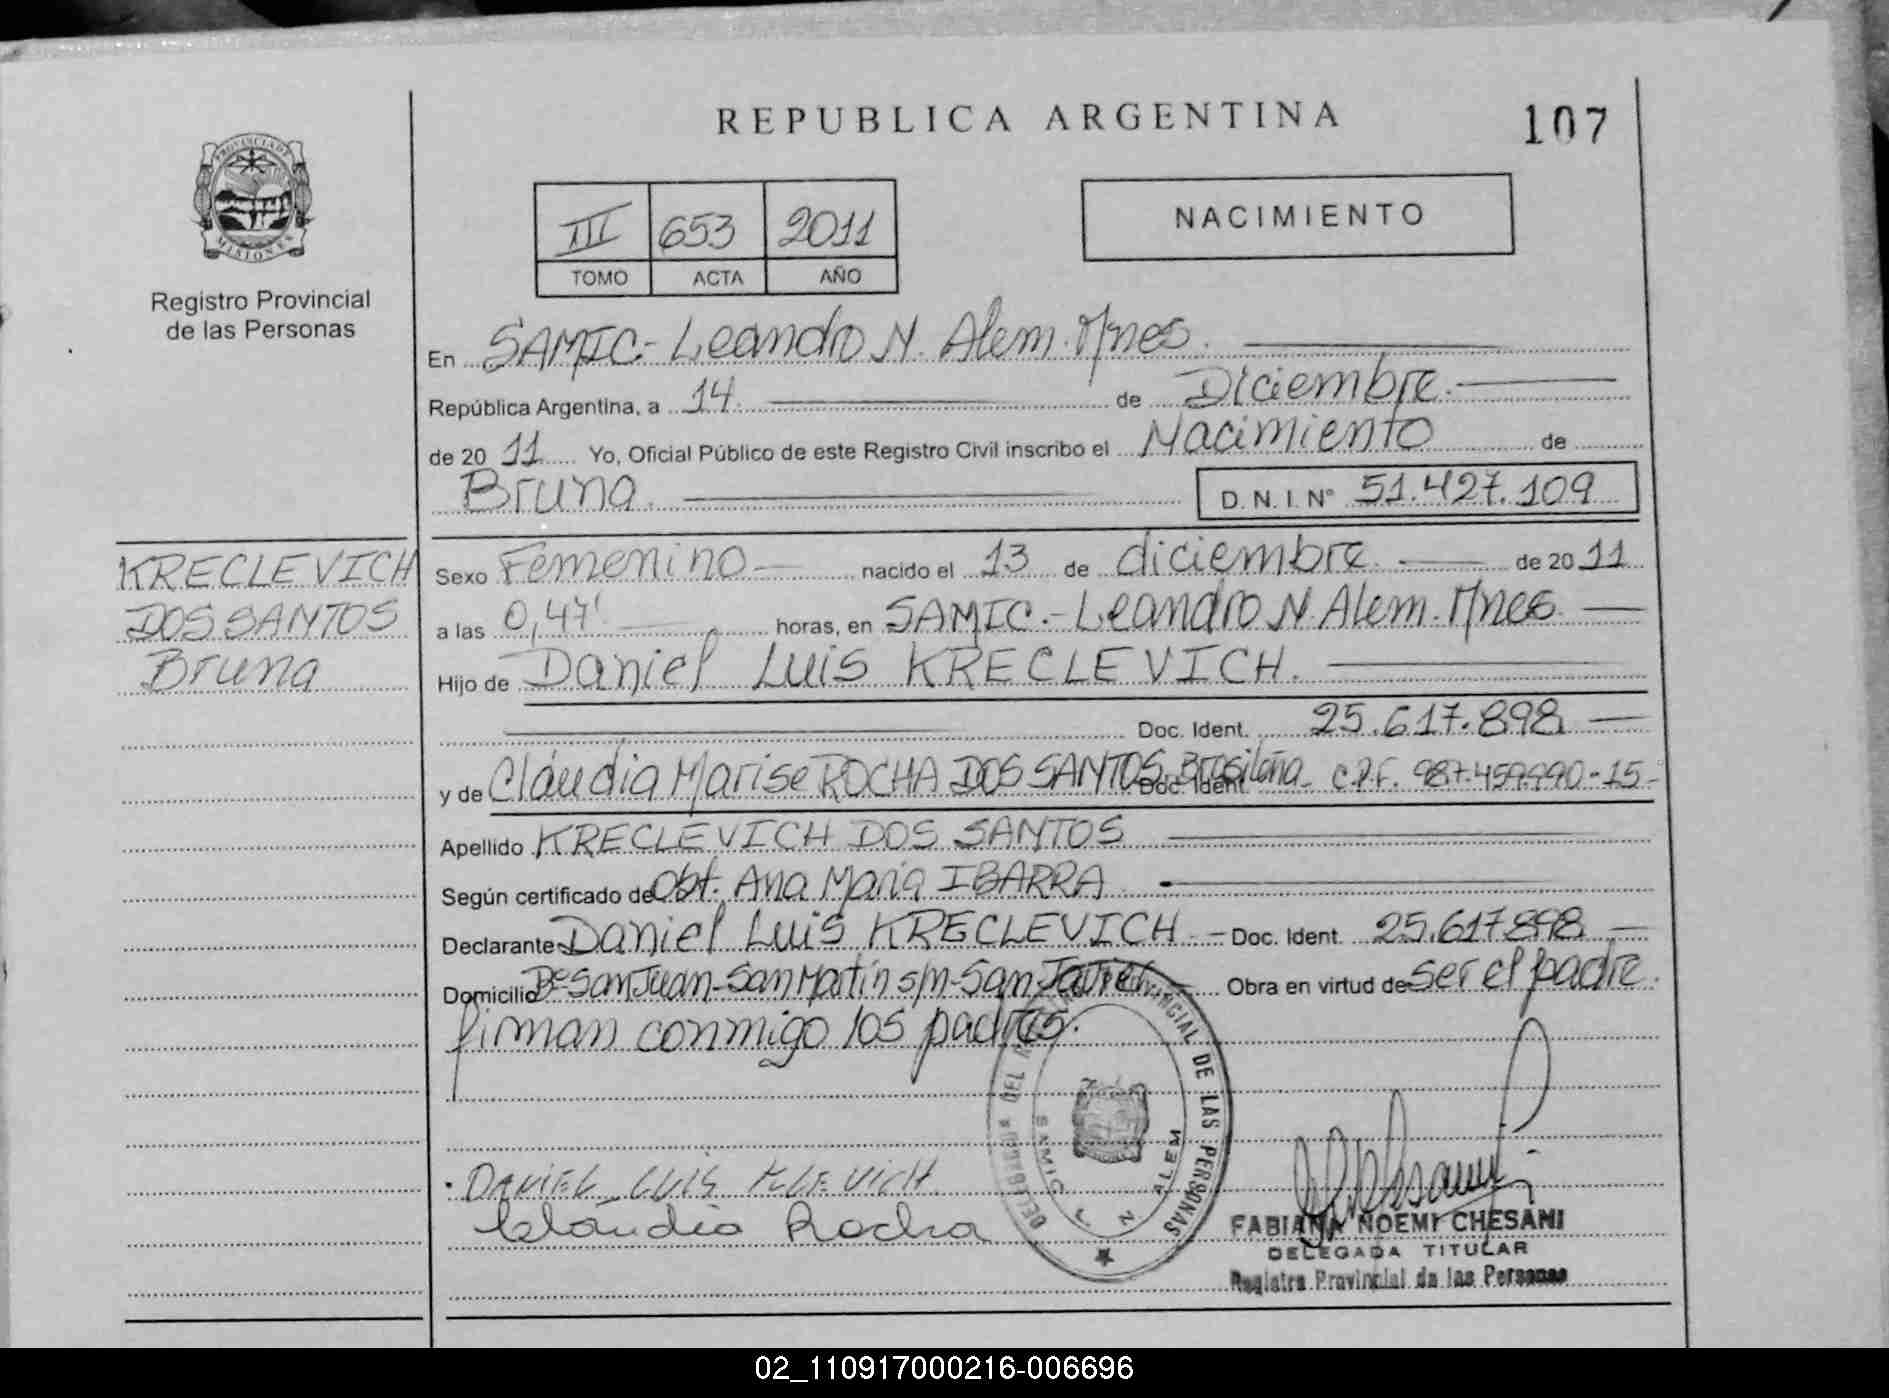 REPUBLICA ARGENTINA
107
PROVINCIA DE
MISIONES
Registro Provincial
de las Personas
III 653 2011
TOMO ACTA AÑO
NACIMIENTO
En SAMIC.- Leandro N. Alem. Mnes.
República Argentina, a 14 de Diciembre.
de 20 11 Yo, Oficial Público de este Registro Civil inscribo el Nacimiento de
Bruna. D. N. I. Nº 51.427.109
KRECLEVICH
DOS SANTOS
Bruna
Sexo Femenino nacido el 13 de diciembre. de 20 11
a las 0,47' horas, en SAMIC.- Leandro N. Alem. Mnes.
Hijo de Daniel Luis KRECLEVICH.
Doc. Ident. 25.617.898
y de Cláudia Marise ROCHA DOS SANTOS. Brasileña Doc. Ident. C.P.F. 987.459.990-15-
Apellido KRECLEVICH DOS SANTOS
Según certificado de Obt. Ana Maria IBARRA
Declarante Daniel Luis KRECLEVICH - Doc. Ident. 25.617.898
Domicilio Bº San Juan - San Martín s/n - San Javier Obra en virtud de ser el padre.
firman conmigo los padres.
DELEGADO DEL REGISTRO PROVINCIAL DE LAS PERSONAS
SAMIC L N ALEM
DANIEL LUIS
Cláudia Rocha
FABIANA NOEMI CHESANI
DELEGADA TITULAR
Registro Provincial de las Personas
02_110917000216-006696